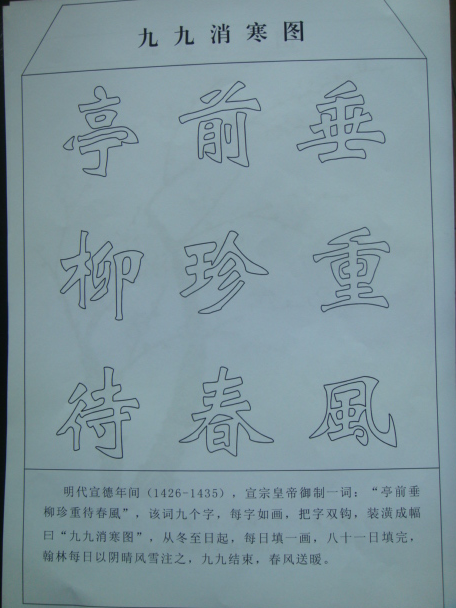 九九消寒图
亭前垂
柳珍重
待春風
明代宣德年间（1426-1435），宣宗皇帝御制一词：“亭前垂
柳珍重待春風”，该词九个字，每字如画，把字双钩，装潢成幅
曰“九九消寒图”，从冬至日起，每日填一画，八十一日填完，
翰林每日以阴晴风雪注之，九九结束，春风送暖。